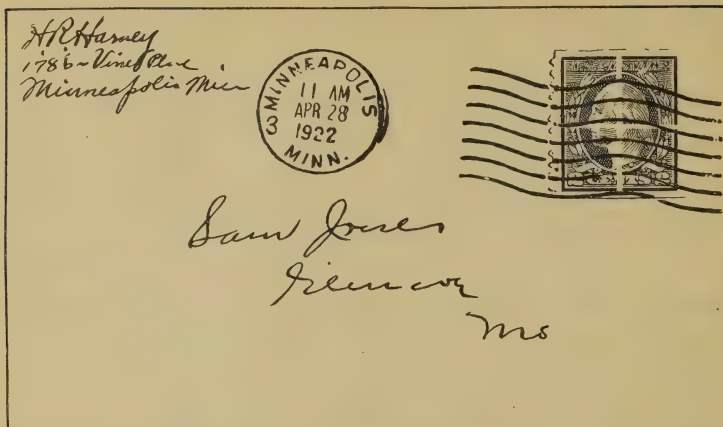 H R Harney
1786 - Vine Place
Minneapolis Minn
MINNEAPOLIS
11 AM
APR 28
1922
3
MINN.
Sam Jones
Glencoe
Mo